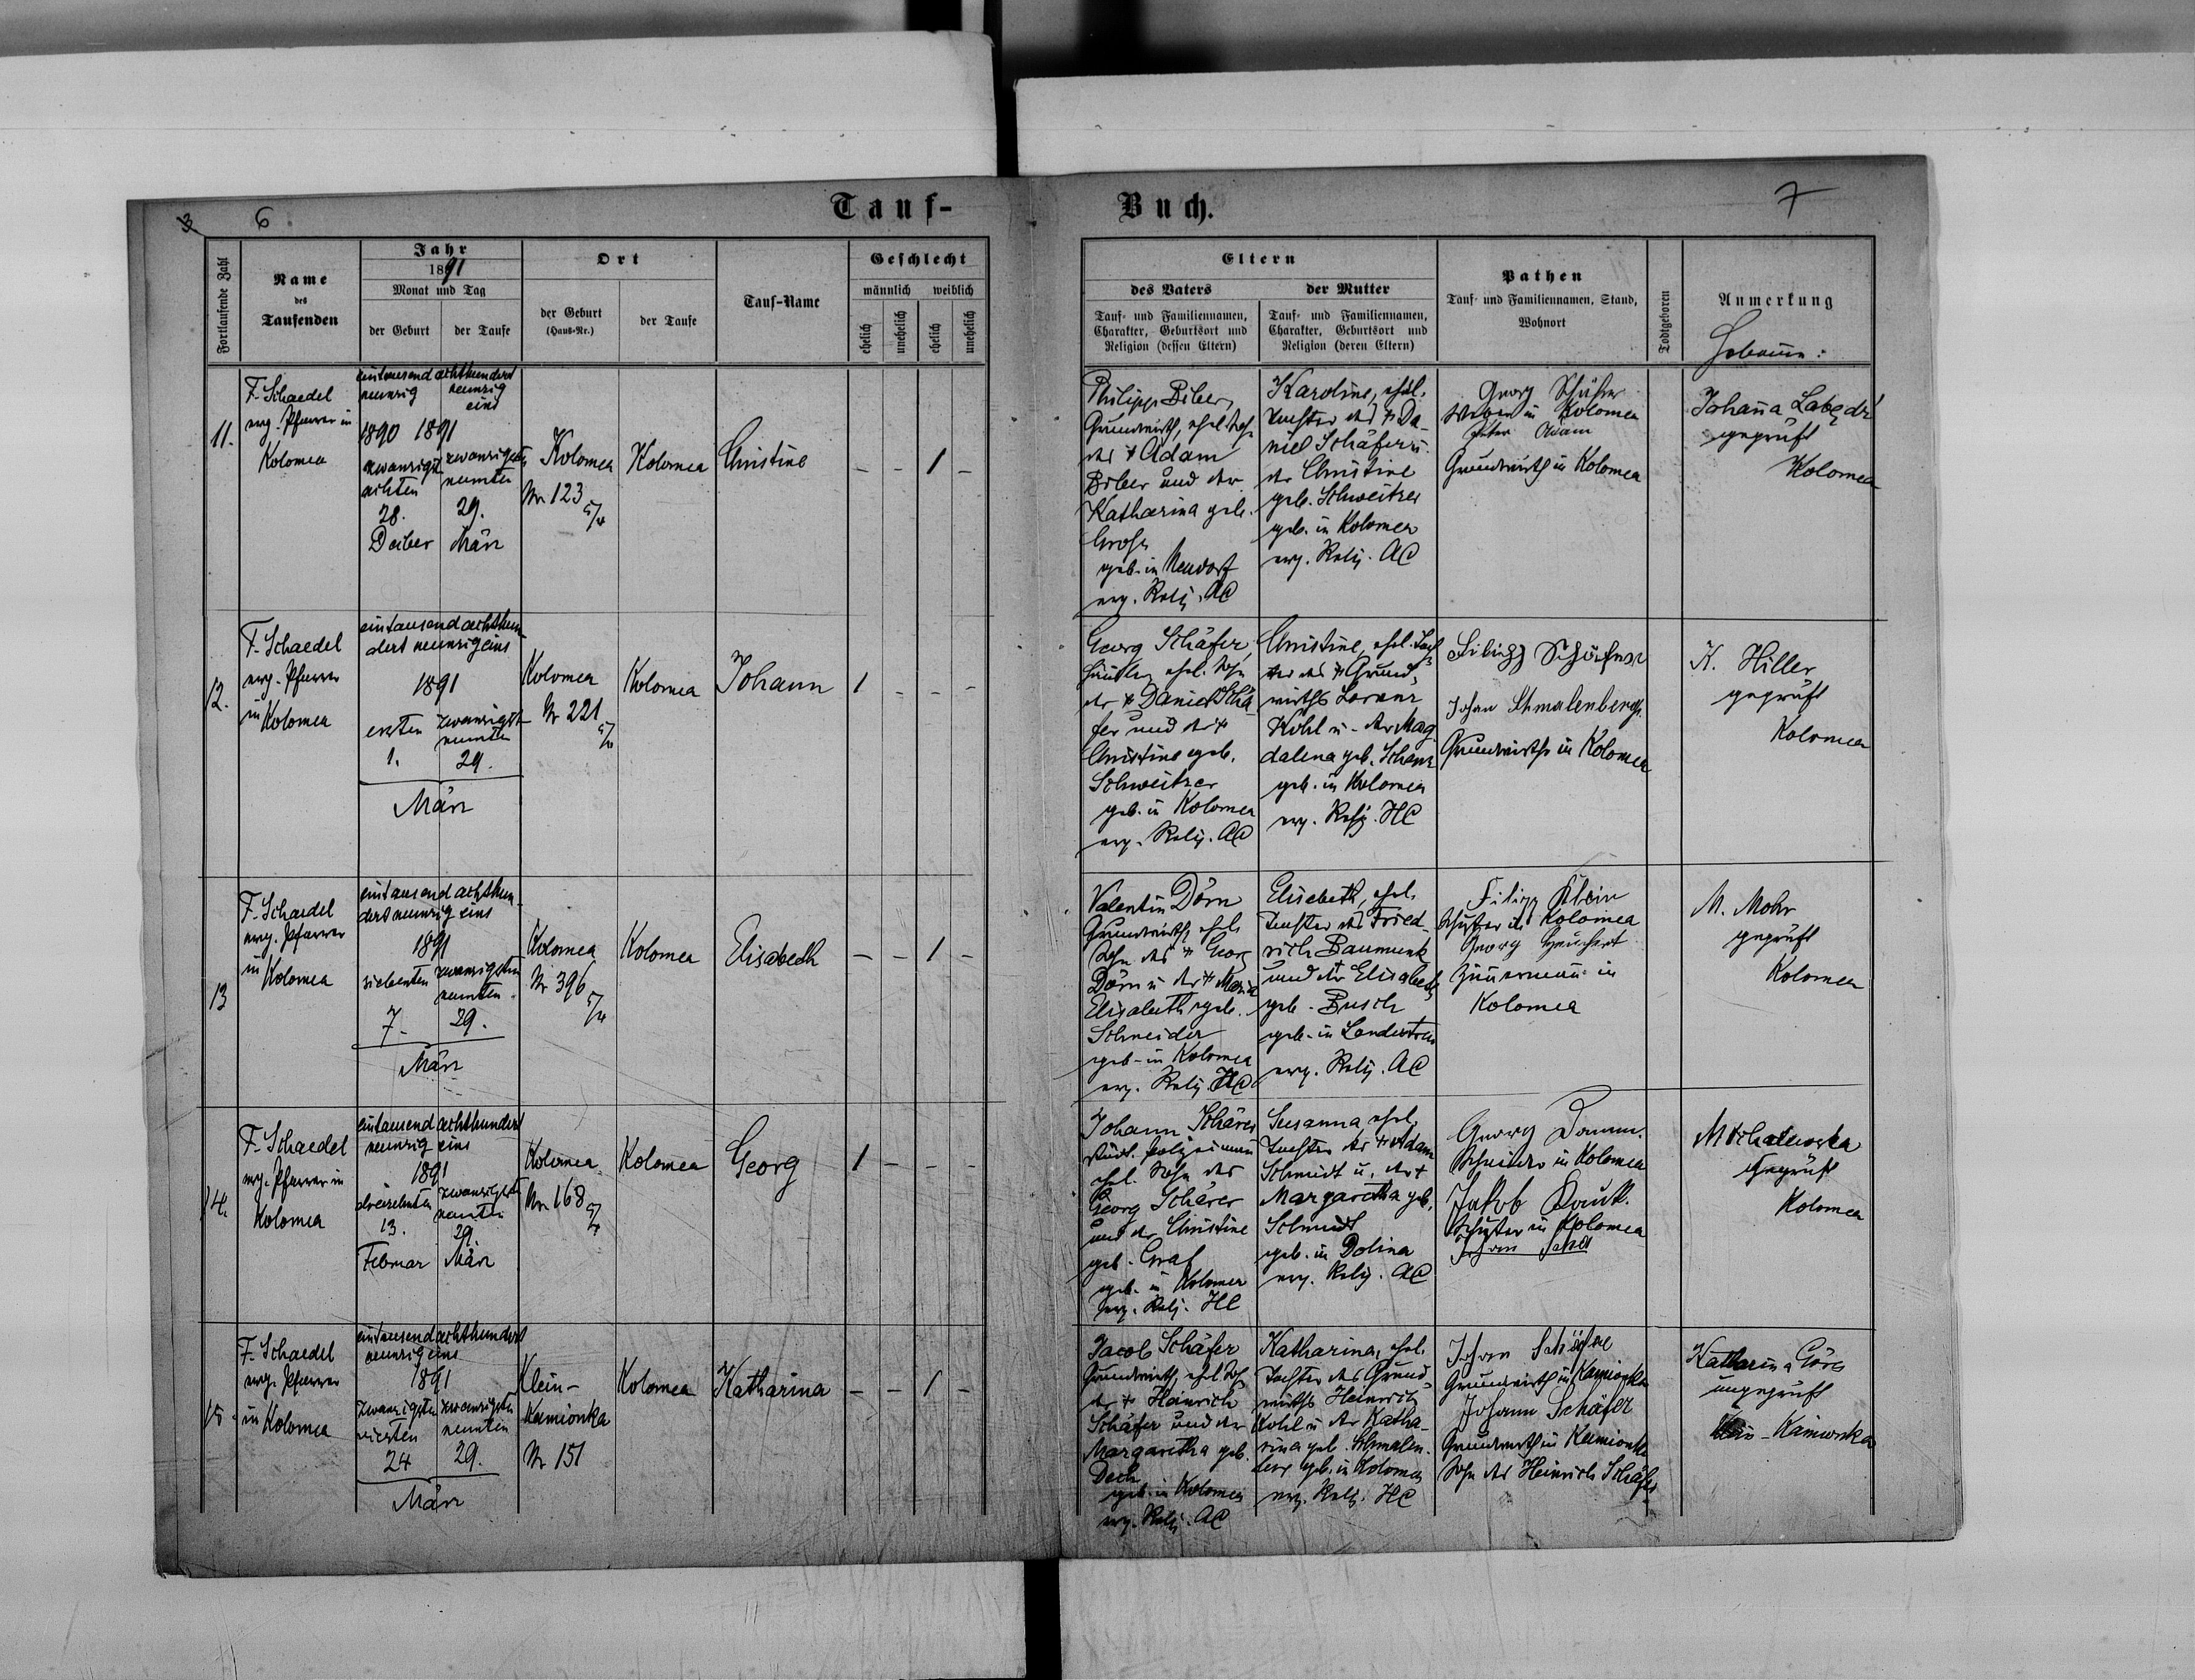 3 6
Tauf-
Buch.
7
Fortlaufende Zahl
Name
des
Taufenden
Jahr
1891
Monat und Tag
der Geburt
der Taufe
Ort
der Geburt
(Haus-Nr.)
der Taufe
Tauf-Name
Geschlecht
männlich
weiblich
ehelich
unehelich
ehelich
unehelich
Eltern
des Vaters
Tauf- und Familiennamen,
Charakter, Geburtsort und
Religion (dessen Eltern)
der Mutter
Tauf- und Familiennamen,
Charakter, Geburtsort und
Religion (deren Eltern)
Pathen
Tauf- und Familiennamen, Stand,
Wohnort
Todtgeboren
Anmerkung
11.
F. Schaedel
evg. Pfarrer in
Kolomea
eintausend achthundert
neunzig
neunzig
eins
1890 1891
achten
neunten
28.
29.
Dezber
März
Kolomea
Nr 123
Kolomea
Christine
- - 1 -
Philipp Biber,
Grundwirth, ehel. Sohn
des + Adam
Biber und der
Katharina geb.
Groß
geb. in Neudorf
evg. Relig. AC
Karoline, ehel.
Tochter des + Da-
niel Schäfer u.
der Christine
geb. Schweitzer
geb. in Kolomea
evg. Relig. AC
Georg Schäfer
in Kolomea
Peter Adam
Grundwirth in Kolomea
Johanna
geprüft
Kolomea
12.
F. Schaedel
evg. Pfarrer
in Kolomea
eintausend achthun-
dert neunzig eins
1891
ersten
neunten
1.
29.
März
Kolomea
Nr 221
Kolomea
Johann
1 - - -
Georg Schäfer,
ehel. Sohn
des + Daniel Schä-
fer und der +
Christine geb.
Schweitzer
geb. in Kolomea
evg. Relig. AC
Christine, ehel. Toch-
ter des + Grund-
wirths Lorenz
Kohl u. der Mag-
dalena geb. Schanz
geb. in Kolomea
evg. Relig. HC
Filipp Schäfer
Johan Schmalenberg
Grundwirthe in Kolomea
K. Hiller
geprüft
Kolomea
13
F. Schaedel
evg. Pfarrer
in Kolomea
eintausend achthun-
dert neunzig eins
1891
siebenten
zwanzigsten
neunten
7.
29.
März
Kolomea
Nr 396
Kolomea
Elisabeth
- - 1 -
Valentin Dörn
Grundwirth, ehel.
Sohn des + Georg
Dörn u. der + Maria
Elisabeth geb.
Schneider
geb. in Kolomea
evg. Relig. HC
Elisabeth, ehel.
Tochter des Fried-
rich Baumunk
und der Elisabeth
geb. Busch
geb. in Landestreu
evg. Relig. AC
Filipp Klein
Schuster in Kolomea
Georg
in
Kolomea
M. Mohr
geprüft
Kolomea
14.
F. Schaedel
evg. Pfarrer in
Kolomea
eintausend achthundert
neunzig eins
1891
dreizehnten
zwanzigsten
neunten
13.
29.
Februar
März
Kolomea
Nr. 168
Kolomea
Georg
1 - - -
Johann Schärer
ehel. Sohn des
Georg Schärer
und der Christine
geb. Graf
geb. in Kolomea
evg. Relig. HC
Susanna, ehel.
Tochter des + Adam
Schmidt u. der +
Margaretha geb.
Schmidt
geb. in Dolina
evg. Relig. AC
Georg
Schneider in Kolomea
Jakob
Schuster in Kolomea
geprüft
Kolomea
15.
F. Schaedel
evg. Pfarrer
in Kolomea
eintausend achthundert
neunzig eins
1891
zwanzigsten
vierten
zwanzigsten
neunten
24
29.
März
Klein-
Kamionka
Nr 151
Kolomea
Katharina
- - 1 -
Jacob Schäfer
Grundwirth, ehel. Sohn
des + Heinrich
Schäfer und der
Margaretha geb.
Dech
geb. in Kolomea
evg. Relig. AC
Katharina, ehel.
Tochter des Grund-
wirths Heinrich
Kohl u. der Katha-
rina geb. Schmalen-
berg geb. in Kolomea
evg. Relig. HC
Johan Schäfer
Grundwirth in Kamionka
Johann Schäfer
Grundwirth in Kamionka
Sohn des Heinrich Schäfer
Katharina
ungeprüft
Klein-Kamionka